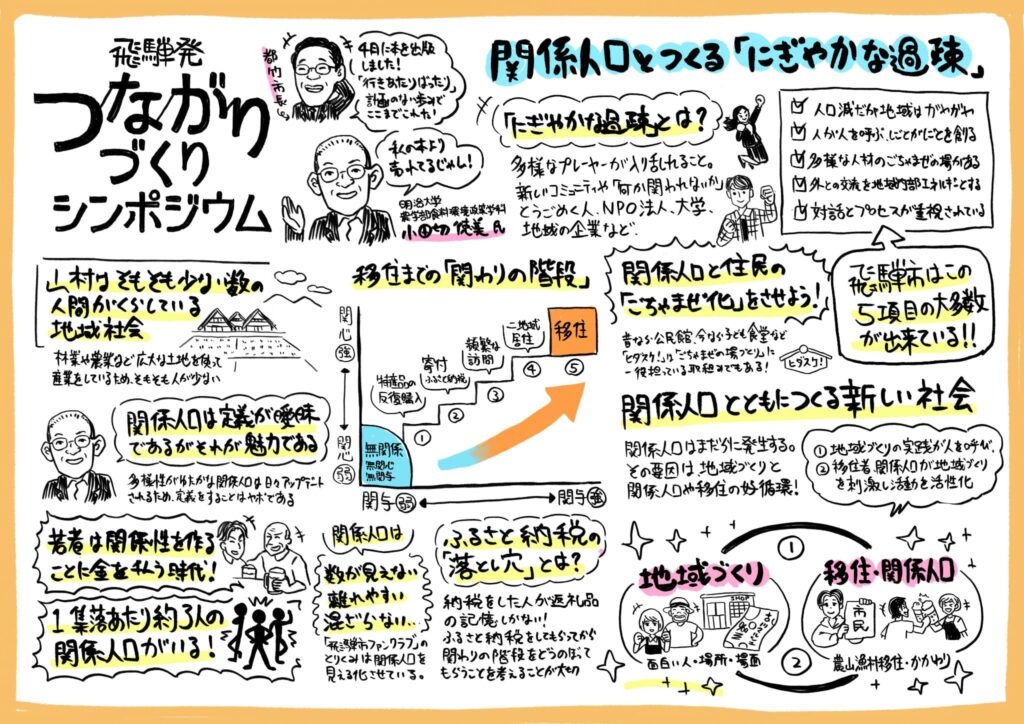 飛騨発
つながり
づくり
シンポジウム
都竹市長
4月に本を出版
しました!
「行きあたりばったり」
計画のない歩みで
ここまでこれた!
私の本より
売れてるじゃん!
明治大学
農学部食料環境政策学科
小田切徳美氏
関係人口とつくる「にぎやかな過疎」
「にぎやかな過疎」とは?
多様なプレーヤーが入り乱れること。
新しいコミュニティや「何か関われないか」
とうごめく人、NPO法人、大学、
地域の企業など、
人口減だが地域はガヤガヤ
人が人を呼ぶ、しごとがしごとを創る
多様な人材のごちゃまぜの場がある
外との交流を地域内部エネルギーとする
対話とプロセスが重視されている
飛騨市はこの
5項目の大多数
が出来ている!!
山村はそもそも少ない数の
人間がくらしている
地域社会
林業や農業など広大な土地を使って
産業をしているため、そもそも人が少ない
関係人口は定義が曖昧
であるがそれが魅力である
多様性がゆたかな関係人口は日々アップデート
されるため、定義をすることはヤボである
若者は関係性を作る
ことに金を払う時代!
1集落あたり約3人の
関係人口がいる!
移住までの「関わりの階段」
関心 強
関心 弱
無関係
無関心
無関与
特産品の
反復購入
寄付
ふるさと納税
頻繁な
訪問
二地域
居住
移住
①
②
③
④
⑤
関与 弱
関与 強
関係人口は
数が見えない
離れやすい
混ざらない…
「飛騨市ファンクラブ」の
とりくみは関係人口を
見える化させている。
ふるさと納税の
「落とし穴」とは?
納税をした人が返礼品
の記憶しかない!
ふるさと納税をしてもらってから
関わりの階段をどうのぼって
もらうことを考えることが大切
関係人口と住民の
「ごちゃまぜ化」をさせよう!
昔なら公民館、今なら子ども食堂など
「ヒダスケ!」も「ごちゃまぜの場づくり」に
一役担っている取組みでもある!
ヒダスケ!
関係人口とともにつくる新しい社会
関係人口はまだらに発生する。
その要因は地域づくりと
関係人口や移住の好循環!
① 地域づくりの実践が人を呼び、
② 移住者・関係人口が地域づくり
を刺激し活動を活性化
①
地域づくり
SHOP
面白い人・場所・場面
移住・関係人口
市民
農山漁村移住・かかわり
②